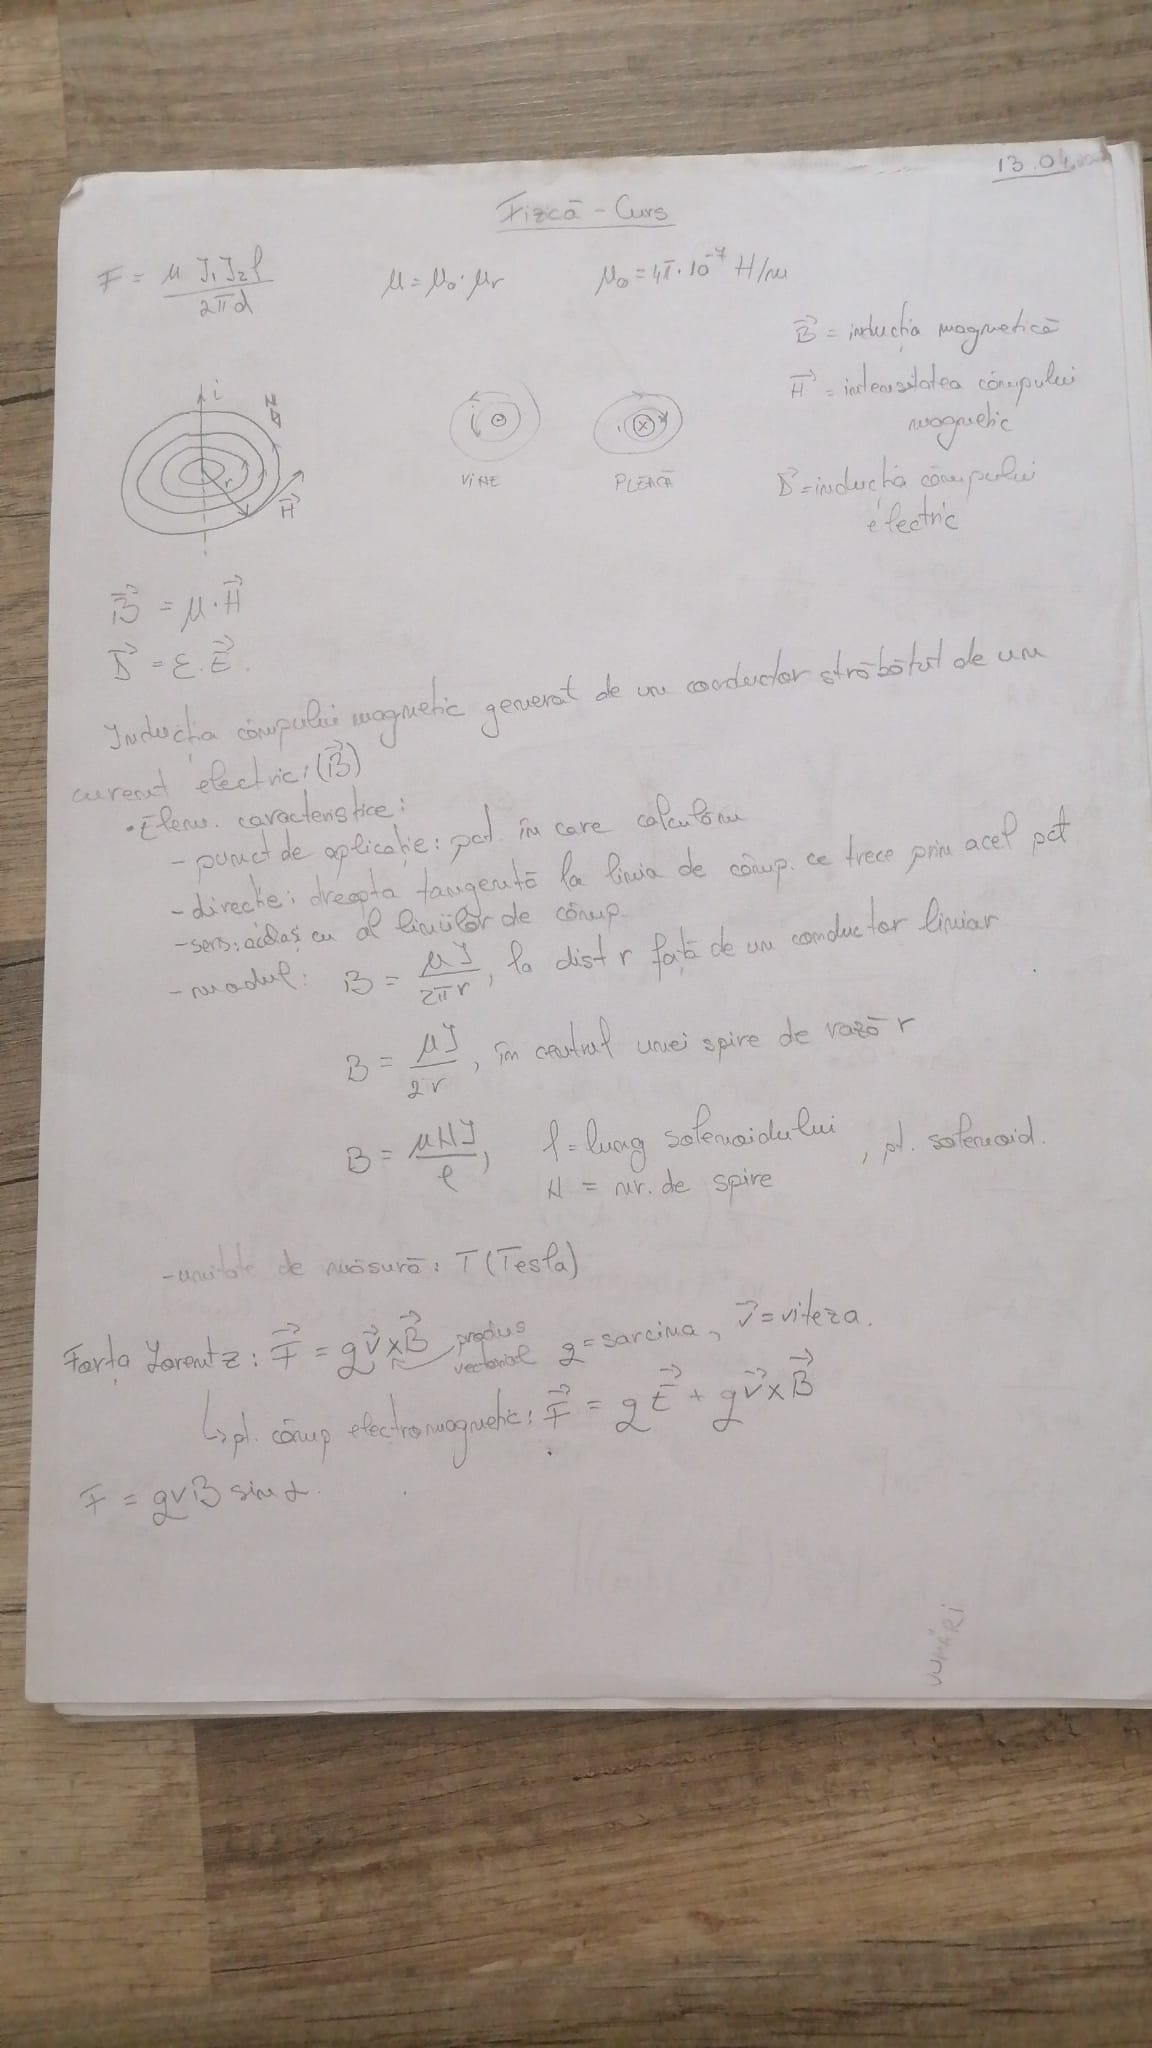 13.04
Fizcă - Curs
F = μ I₁ I₂ l / 2πd   μ = μ₀ · μr   μ₀ = 4π · 10⁻⁷ H/m
B⃗ = inducția magnetică
H⃗ = intensitatea câmpului
magnetic
D⃗ = inducția câmpului
electric
i
N
r
H⃗
VINE   PLEACĂ
B⃗ = μ · H⃗
D⃗ = ε · E⃗.
Inducția câmpului magnetic generat de un conductor străbătut de un
curent electric: (B⃗)
• Elem. caracteristice:
- punct de aplicație: pct. în care calculăm
- direcție: dreapta tangentă la linia de câmp. ce trece prin acel pct
- sens: același cu al liniilor de câmp.
- modul: B = μI / 2πr, la dist r față de un conductor liniar
B = μI / 2r, în centrul unei spire de rază r
B = μNI / l, l = lung solenoidului, pt. solenoid.
N = nr. de spire
- unitate de măsură: T (Tesla)
Forța Lorentz: F⃗ = qv⃗ x B⃗ produs vectorial q = sarcina, v⃗ = viteza.
↳ pt. câmp electromagnetic: F⃗ = qE⃗ + qv⃗ x B⃗
F = qvB sin α.